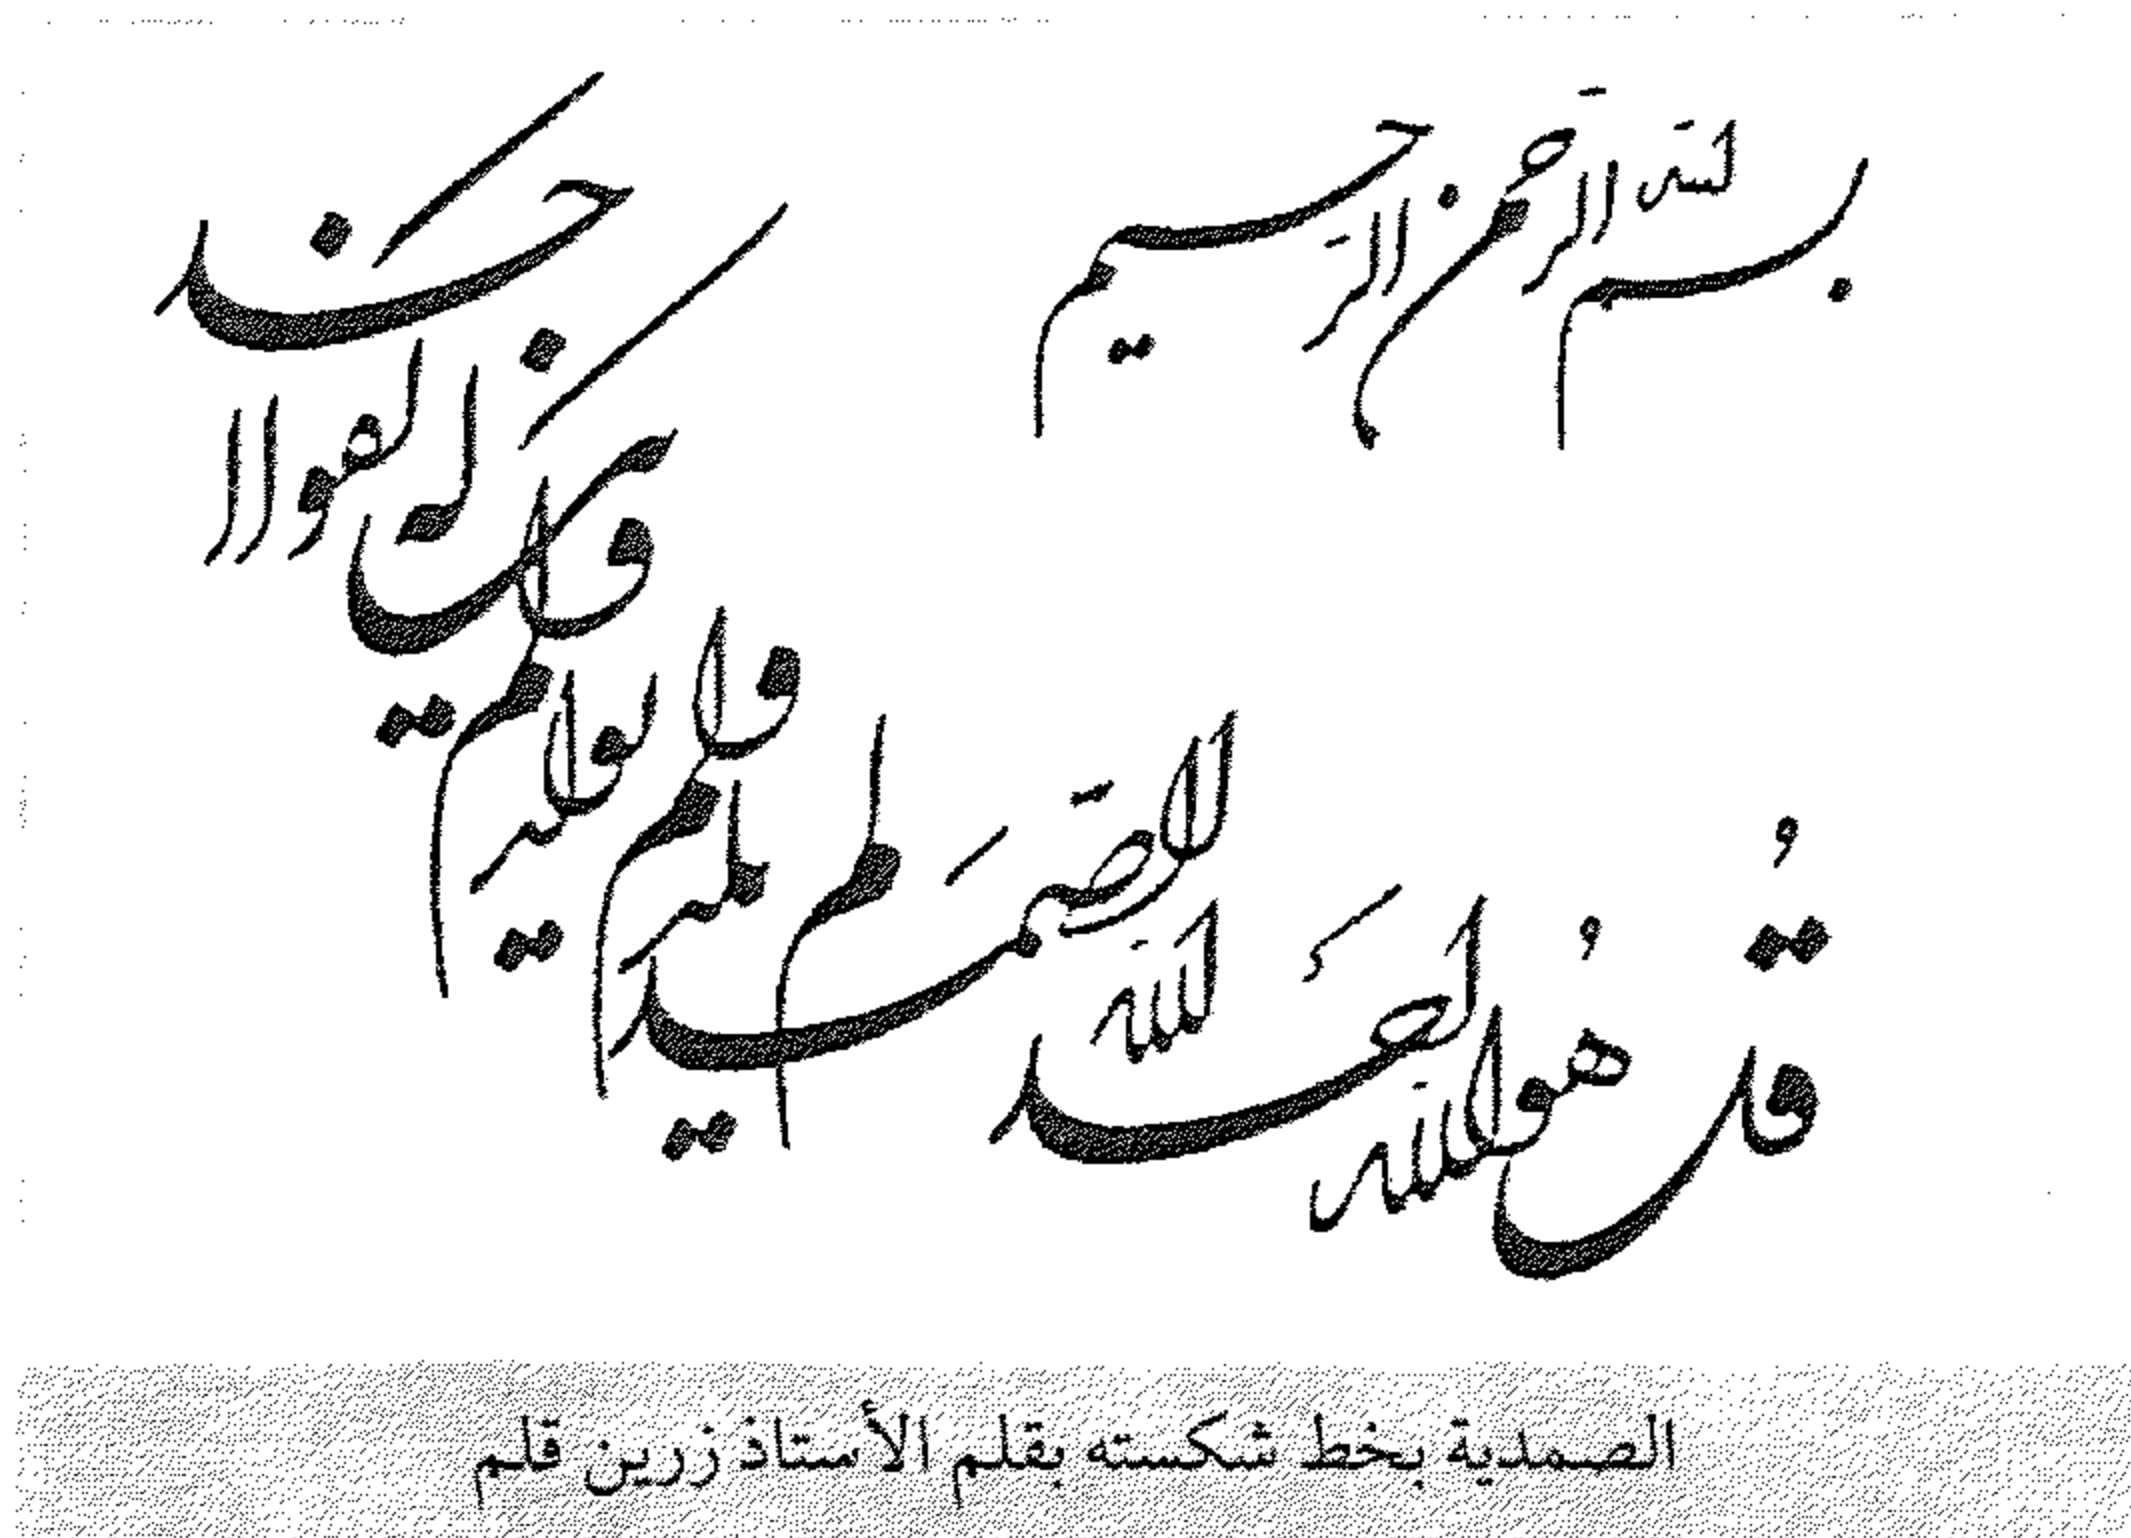 بسم الله الرحمن الرحيم
قُل هُو الله احد الله الصمد لم يلد ولم يولد ولم يكن له كفوا احد
الصمدية بخط شكسته بقلم الأستاذ زرين قلم